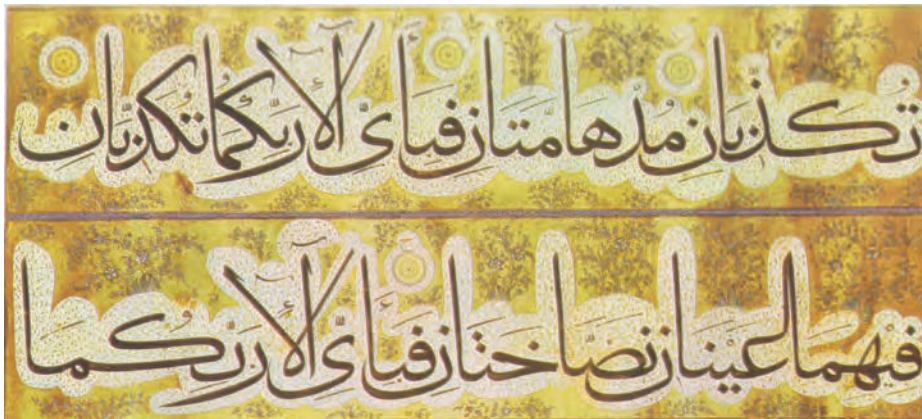 تُكَذِّبَانِ مُدْهَامَّتَانِ فَبِأَىِّ آلَآءِ رَبِّكُمَا تُكَذِّبَانِ
فِيهِمَا عَيْنَانِ نَضَّاخَتَانِ فَبِأَىِّ آلَآءِ رَبِّكُمَا